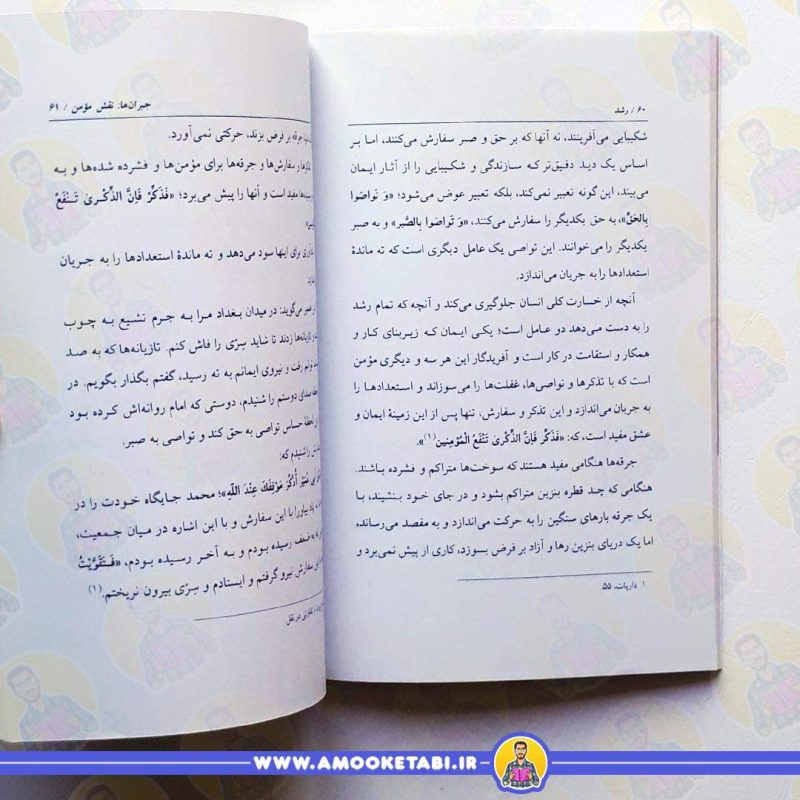 ۶۰ / رشد
شکیبایی می‌آفرینند، نه آنها که بر حق و صبر سفارش می‌کنند، اما بر
اساس یک دید دقیق‌تر که سازندگی و شکیبایی را از آثار ایمان
می‌بیند، این گونه تعبیر نمی‌کند، بلکه تعبیر عوض می‌شود؛ «وَ تَواصَوا
بِالحَقِّ»، به حق یکدیگر را سفارش می‌کنند، «وَ تَواصَوا بِالصَّبر» و به صبر
یکدیگر را می‌خوانند. این تواصی یک عامل دیگری است که ته ماندهٔ
استعدادها را به جریان می‌اندازد.
آنچه از خسارت کلی انسان جلوگیری می‌کند و آنچه که تمام رشد
را به دست می‌دهد دو عامل است؛ یکی ایمان که زیربنای کار و
همکار و استقامت در کار است و آفریدگار این هر سه و دیگری مؤمن
است که با تذکرها و تواصی‌ها، غفلت‌ها را می‌سوزاند و استعدادها را
به جریان می‌اندازد و این تذکر و سفارش، تنها پس از این زمینهٔ ایمان و
عشق مفید است، که: «فَذَکِّر فَاِنَّ الذِّکریٰ تَنْفَعُ الْمُؤمِنین»(۱).
جرقه‌ها هنگامی مفید هستند که سوخت‌ها متراکم و فشرده باشند.
هنگامی که چند قطره بنزین متراکم بشود و در جای خود بنشیند، با
یک جرقه بارهای سنگین را به حرکت می‌اندازد و به مقصد می‌رساند،
اما یک دریای بنزین رها و آزاد بر فرض بسوزد، کاری از پیش نمی‌برد و
۱. ذاریات، ۵۵
جبران‌ها: نقش مؤمن / ۶۱
جرقه بر فرض بزند، حرکتی نمی‌آورد.
و سفارش‌ها و جرقه‌ها برای مؤمن‌ها و فشرده شده‌ها و به
مفید است و آنها را پیش می‌برد؛ «فَذَکِّرْ فَاِنَّ الذِّکریٰ تَنْفَعُ
برای اینها سود می‌دهد و ته ماندهٔ استعدادها را به جریان
می‌گوید: در میدان بغداد مرا به جرم تشیع به چوب
و تازیانه‌ها زدند تا شاید سِرّی را فاش کنم. تازیانه‌ها که به صد
رفت و نیروی ایمانم به ته رسید، گفتم بگذار بگویم. در
صدای دوستم را شنیدم، دوستی که امام روانه‌اش کرده بود
لحظهٔ حساس تواصی به حق کند و تواصی به صبر.
را شنیدم که:
اُذْکُرْ مَوْقِفَکَ عِنْدَ اللّٰهِ»؛ محمد جایگاه خودت را در
یاد بیاور! با این سفارش و با این اشاره در میان جمعیت،
به ضعف رسیده بودم و به آخر رسیده بودم، «فَتَقَوَّیْتُ
سفارش نیرو گرفتم و ایستادم و سِرّی بیرون نریختم.(۱)
تفاوتی در نقل
WWW.AMOOKETABI.IR